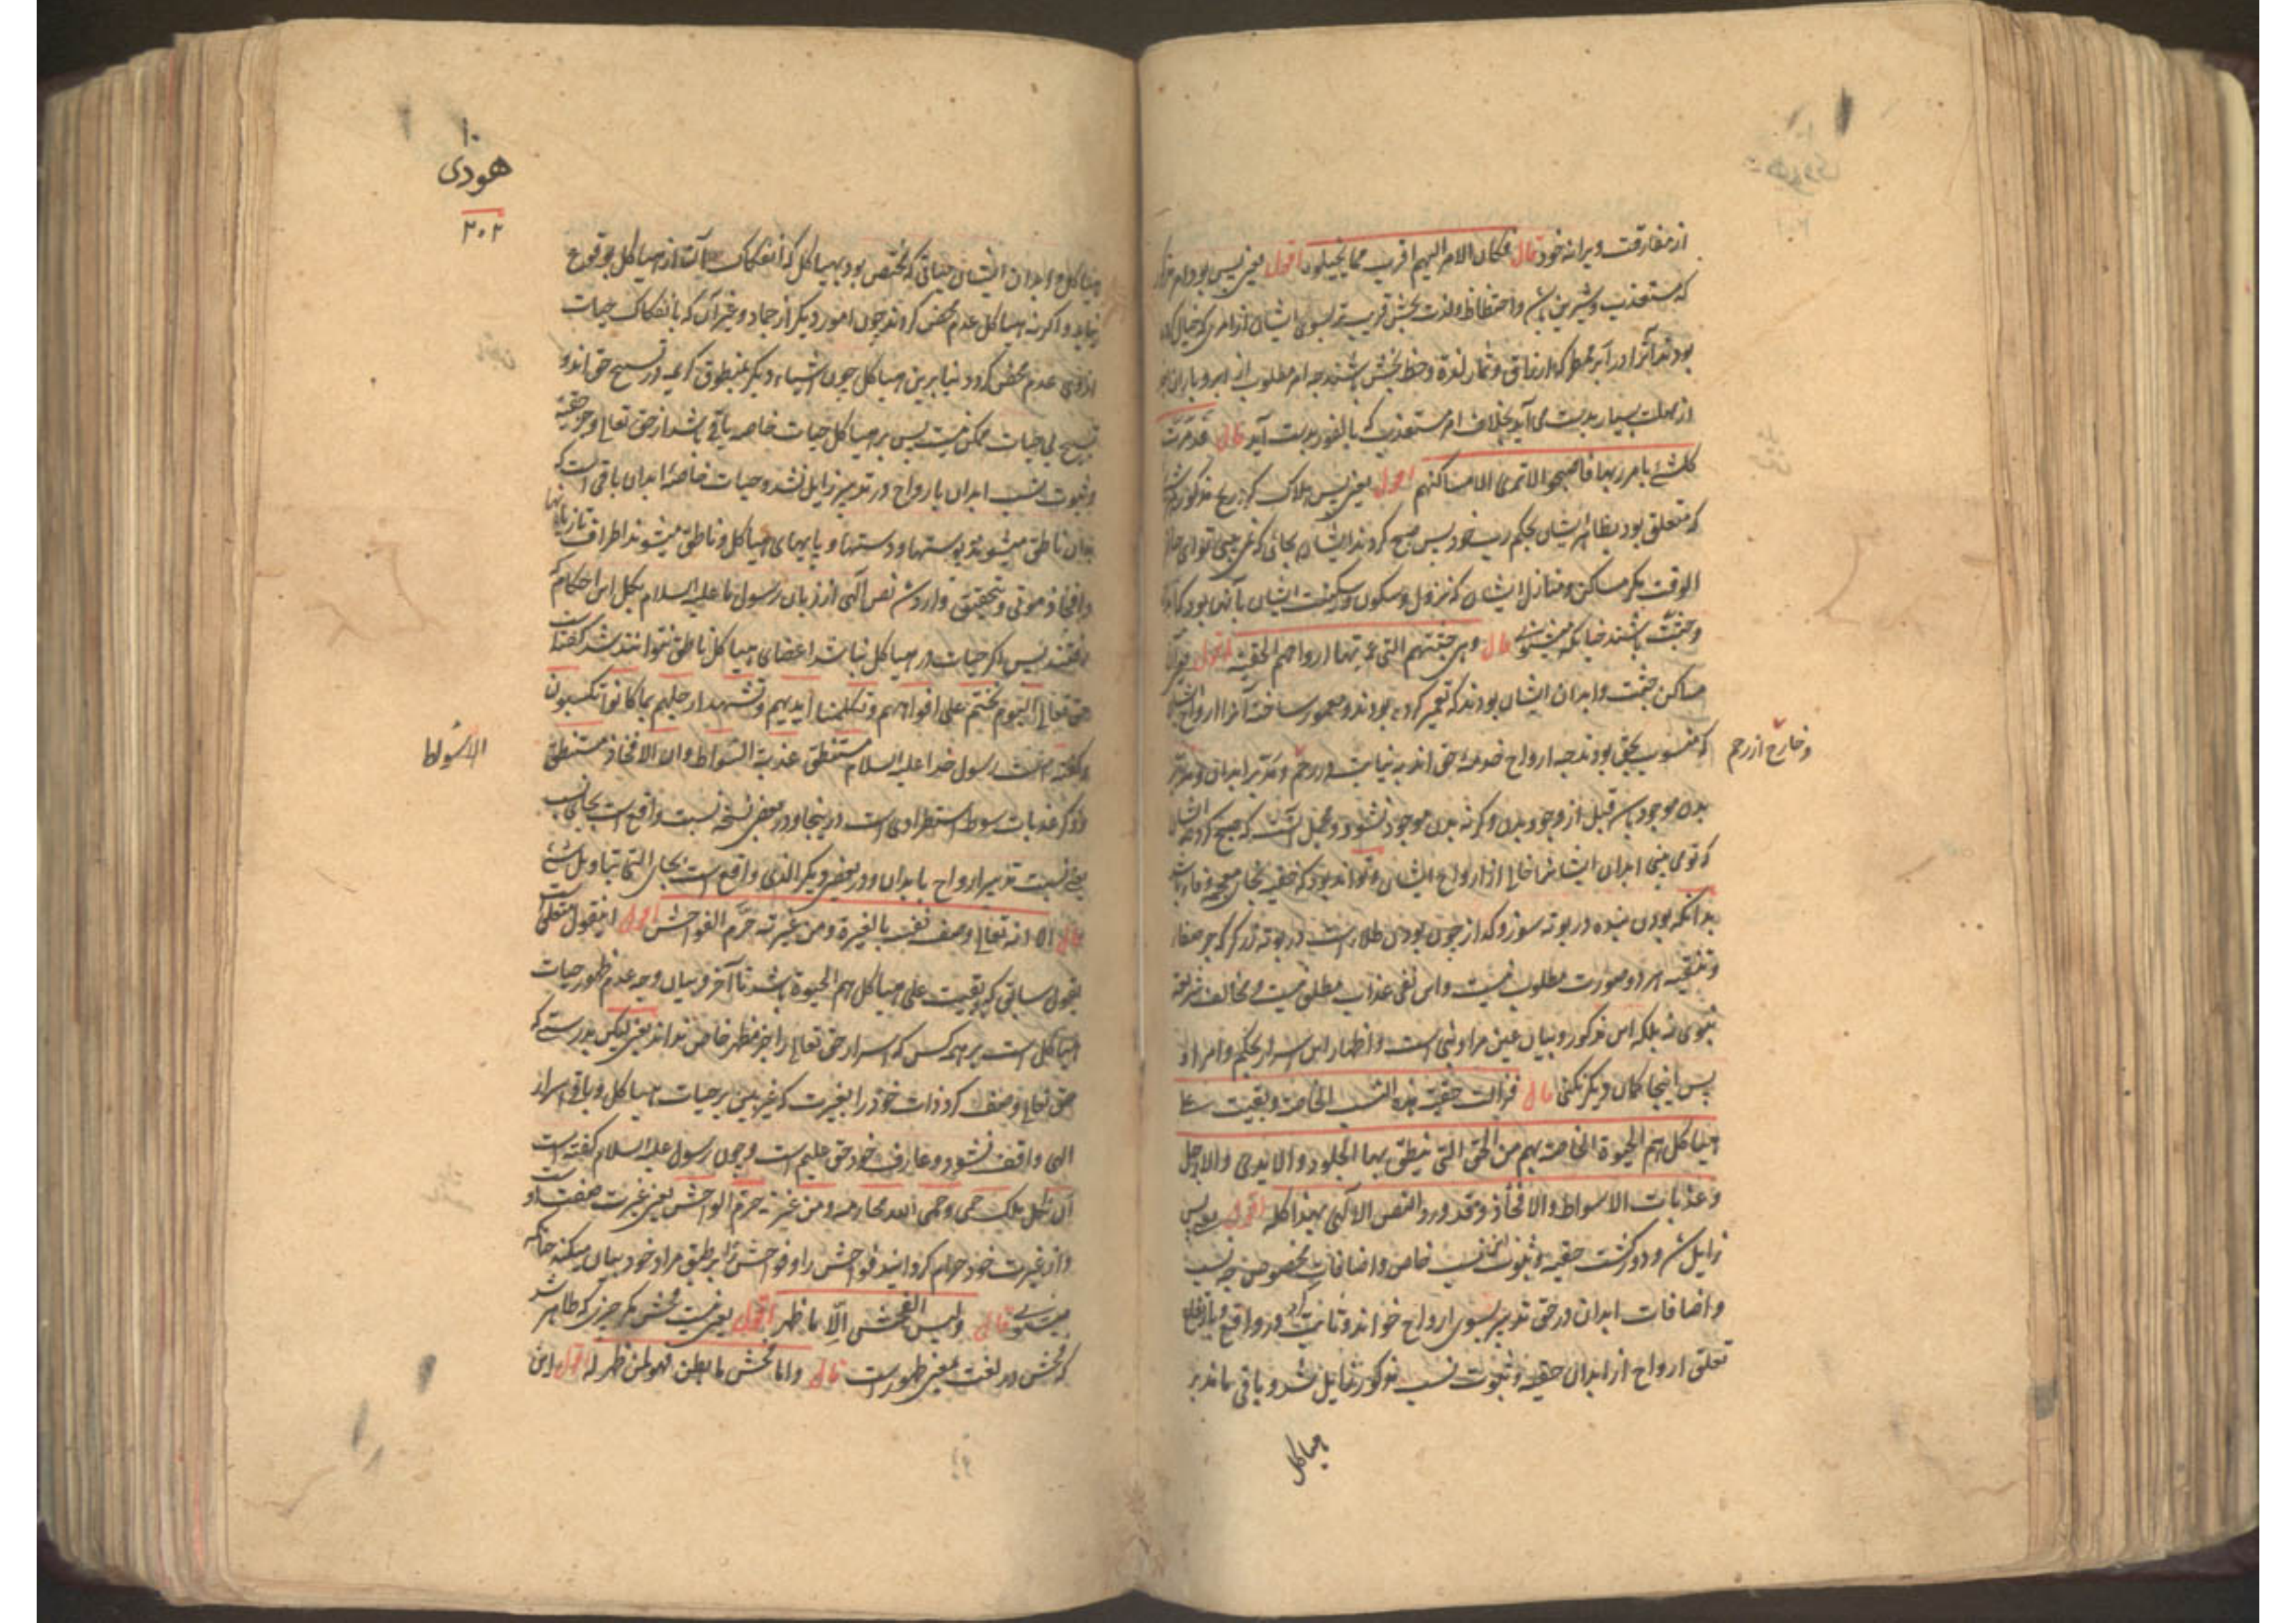 از مفارقت ویرانه خود قال فکان الامر الیهم اقرب مما تخیلون اقول یعنی پس بود امر
که مستعذب و شیرین باشد و احتظاظ ولذت بخش قریب تر بسوی ایشان از امری که خیال کرده
بودند آنرا در ابر ممطر که ارزاق و ثمار لذة و حظ بخش باشند چه امر مطلوب از ابر و باران
از مهلت بسیار بدست می آید بخلاف امر مستعذب که بالفور بدست آید قال فدمرت
کل شئ بامر ربها فاصبحوا لا تری الا مساکنهم اقول یعنی پس هلاک کرد ریح مذکور
که متعلق بود بظاهر ایشان بحکم رب خود پس صبح کردند ایشان بجائی که
الوقت مگر مساکن و منازل ایشان که نزول و سکون و سکونت ایشان بآن بود
وجثت باشند چنانکه قال وهی جثتهم التی عمرتها ارواحهم الحقیة اقول
مساکن جثت و ابدان ایشان بودند که تعمیر کرده بودند و معمور ساخته آنرا ارواح
که منسوب بحق بودند چه ارواح خدمهٔ حق اند به نیابت در رحم و مدبر ابدان
و خارج از رحم
بدن موجود باشد قبل از وجود بدن وگرنه بدن موجود نشود و محتمل است که صبح کردند ایشان
که تو می بینی ابدان ایشانرا خالی از ارواح ایشان و تواند بود که حقیه بخای معجمه و فا باشد
بدانکه بودن بنده در بوته سوز و گداز چون بودن طلا است در بوته زرگر که جز صفا
و تنقیه هر دو صورت مطلوب نیست و این نفی عذاب مطلق نیست و مخالف شریعت
نبوی نه بلکه این مذکور و بیان عین مراد نبی است و اظهار این اسرار بحکم و امر او
پس اینجا گمان دیگر نکنی قال فزالت حقیة هذه النسب الخاصة و بقیت علی
هیاکلهم الحیوة الخاصة بهم من الحق التی ینطق بها الجلود والایدی والارجل
وعذبات الاسواط والافخاذ وقد ورد النص الالهی بهذا کله اقول یعنی پس
زایل شد و دور گشت حقیه و ثبوت این نسب خاص و اضافات مخصوص چه نسب
و اضافات ابدان در حق تدبیر بسوی ارواح خواند و ثابت کرد در واقع
تعلق ارواح از ابدان حقیه و ثبوت نسب مذکور زایل شد و باقی ماند بر
هیاکل
۱۰
هودی
۲۰۲
هیاکل و ابدان ایشان حیاتی که مختص بود بهیاکل که انفکاک آن از هیاکل بوقوع
نیاید و اگر نه هیاکل عدم محض گردند چون امور دیگر از جماد و غیر آن که بانفکاک حیات
ازوی عدم محض گردد بنا برین هیاکل چون اشیاء دیگر بمنطوق کریمه در تسبیح حق اند و
تسبیح بی حیات ممکن نیست پس بر هیاکل حیات خاصه باقی باشد از حق تعالی
و ثبوت نسب ابدان بارواح در تدبیر زایل شد و حیات خاصهٔ ابدان باقی است که
بدان ناطق میشوند پوستها و دستها و پایهای هیاکل و ناطق میشوند اطراف تازیانها
و افخاذ موتی و بتحقیق وارد شد نص الهی از زبان رسول ما علیه السلام بکل این احکام که
گفتند پس اگر حیات در هیاکل نباشد اعضای هیاکل ناطق نتوانند شد گفته است
حق تعالی الیوم نختم علی افواههم وتکلمنا ایدیهم وتشهد ارجلهم بما کانوا یکسبون
و گفته است رسول خدا علیه السلام ستنطق عذبة السواط وان الافخاذ ستنطق
الاسواط
و ذکر عذبات سوط استطرادی است در اینجا و در بعضی نسخه نسبت واقع است بجای نسب
یعنی نسبت تدبیر ارواح با بدان و در بعضی دیگر الذی واقع است بجای التی
قال الا انه تعالی وصف نفسه بالغیرة ومن غیرته حرم الفواحش اقول این قول متعلق است
بقول سابق که بقیت علی هیاکلهم الحیوة باشد تا آخر و بیان وجه عدم ظهور حیات
هیاکل است بر همه کس که اسرار حق تعالی را جز مظهر خاص نداند یعنی لیکن بدرستی که
حق تعالی وصف کرد ذات خود را بغیرت که غیر بینی بر حیات هیاکل و باقی اسرار
الهی واقف نشود و عارف خود حق علیم است و چون رسول علیه السلام گفته است
ان لکل ملک حمی وحمی الله محارمه ومن غیرته حرم الفواحش یعنی غیرت صفت او است
و از غیرت خود حرام گردانید فواحش را و فواحش را بر طبق مراد خود بیان میکند چنانکه
میگوید قال ولیس الفحش الا ما ظهر اقول یعنی نیست فحش مگر چیزی که ظاهر شد
که فحش در لغت بمعنی ظهور است قال واما فحش ما بطن فهو لمن ظهر له اقول این